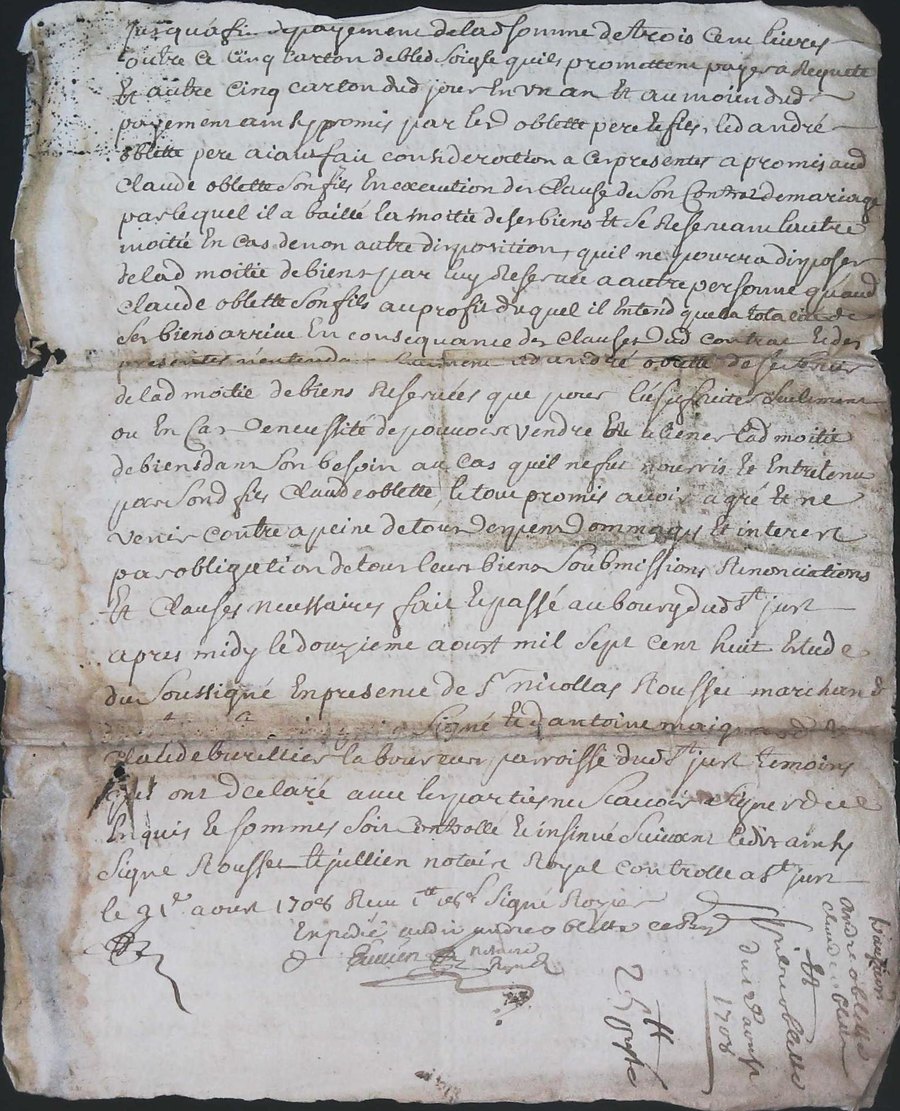 jusqu'a fin depayement delad somme de trois cent livres
outre ce cinq carton debled soigle quils promettent payer a Requete
Et autre cinq carton dud jour En un an Et au moien dud
payement ainsy promis par led oblette pere Et fils, led andré
oblette pere aiant fait consideration a ces presentes a promis aud
Claude oblette son fils En execution des Clauses de son Contrat demariage
par lequel il a baillé la moitié de ses biens Et se Reservant lautre
moitié En cas de non autre disposition, quil ne pourra disposer
delad moitié de biens par luy Reservée a autre personne qu'aud
Claude oblette son fils au profit duquel il Entend que la totalité de
ses biens arrive En consequance des Clauses dud contrat Et des
presentes led andré oblette de se
delad moitié de biens Reservées que pour seulement
ou En Cas de necessité de pouvoir vendre Ou aliener lad moitié
de biens dans son besoin au cas quil ne fut nourris Et Entretenu
par sond fils Claude oblette, le tout promis avoir a gré Et ne
venir contre a peine de tous depens dommages Et interest
par obligation de tous leurs biens Soubmissions Renonciations
Et Clauses necessaires fait Et passé au bourg dud St just
apres midy le douzieme aoust mil sept cent huit Etude
du Soussigné En presence de Sr nicollas Rousset marchand
signé Et d antoine
Claude laboureur parroisse dud St just temoins
qui ont declaré avec les parties ne scavoir signer de ce
Enquis Et sommes soit controllé Et insinué suivant ledit ainsy
Signé Rousset Et jullien notaire Royal controllé a St just
le 21e aoust 1708 Receu Signé Rozier
Expedié audit andre oblette
Jullien notaire
Royal
andre oblette
claude oblette
du 12 aoust
1708